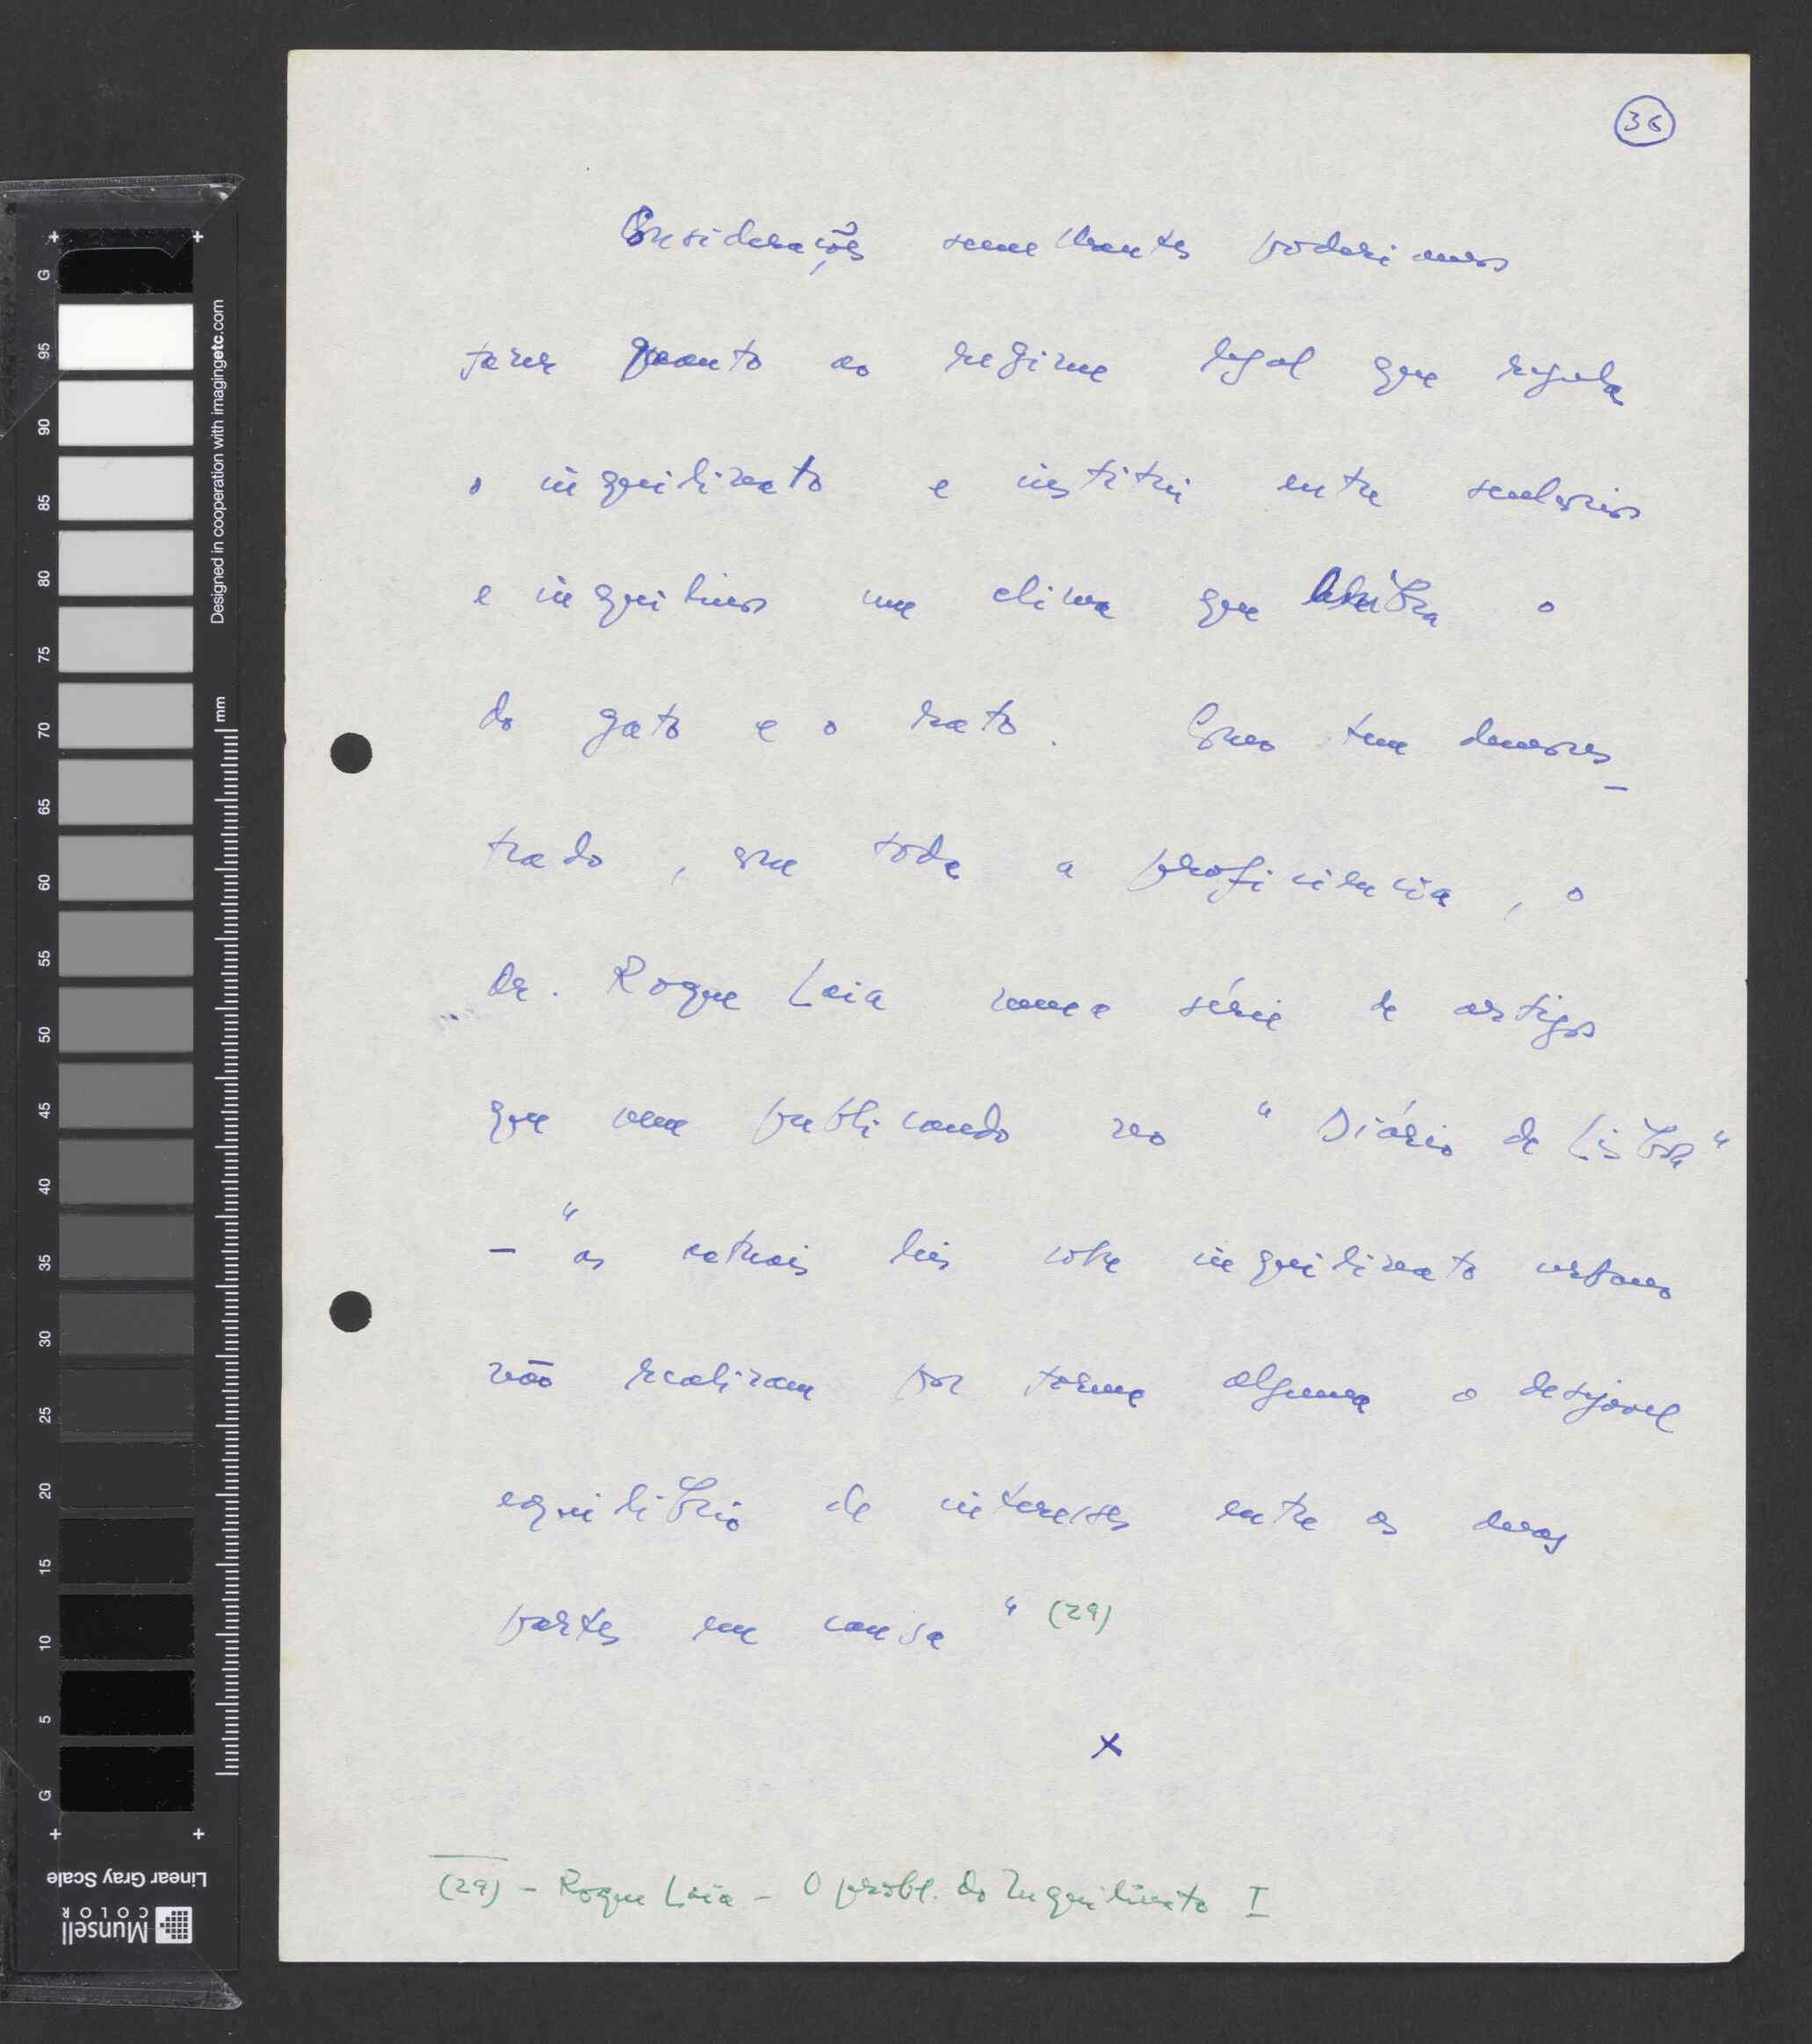 36
Considerações semelhantes poderiamos
fazer quanto ao regime legal que regula
o inquilinato e institui entre senhorios
e inquilinos um clima que lembra o
do gato e o rato. Como tem demons-
trado, com toda a proficiencia, o
dr. Roque Laia numa série de artigos
que vem publicando no " Diário de Lisboa"
- "as actuais leis sobre inquilinato urbano
não realizam por forma alguma o desejavel
equilibrio de interesses entre as duas
partes em causa " (29)
x
(29) - Roque Laia - O probl. do Inquilinato I
G 95 90 85 80 75 70 65 60 55 50 45 40 35 30 25 20 15 10 5 G
Designed in cooperation with imagingetc.com
mm
Linear Gray Scale
Munsell
COLOR